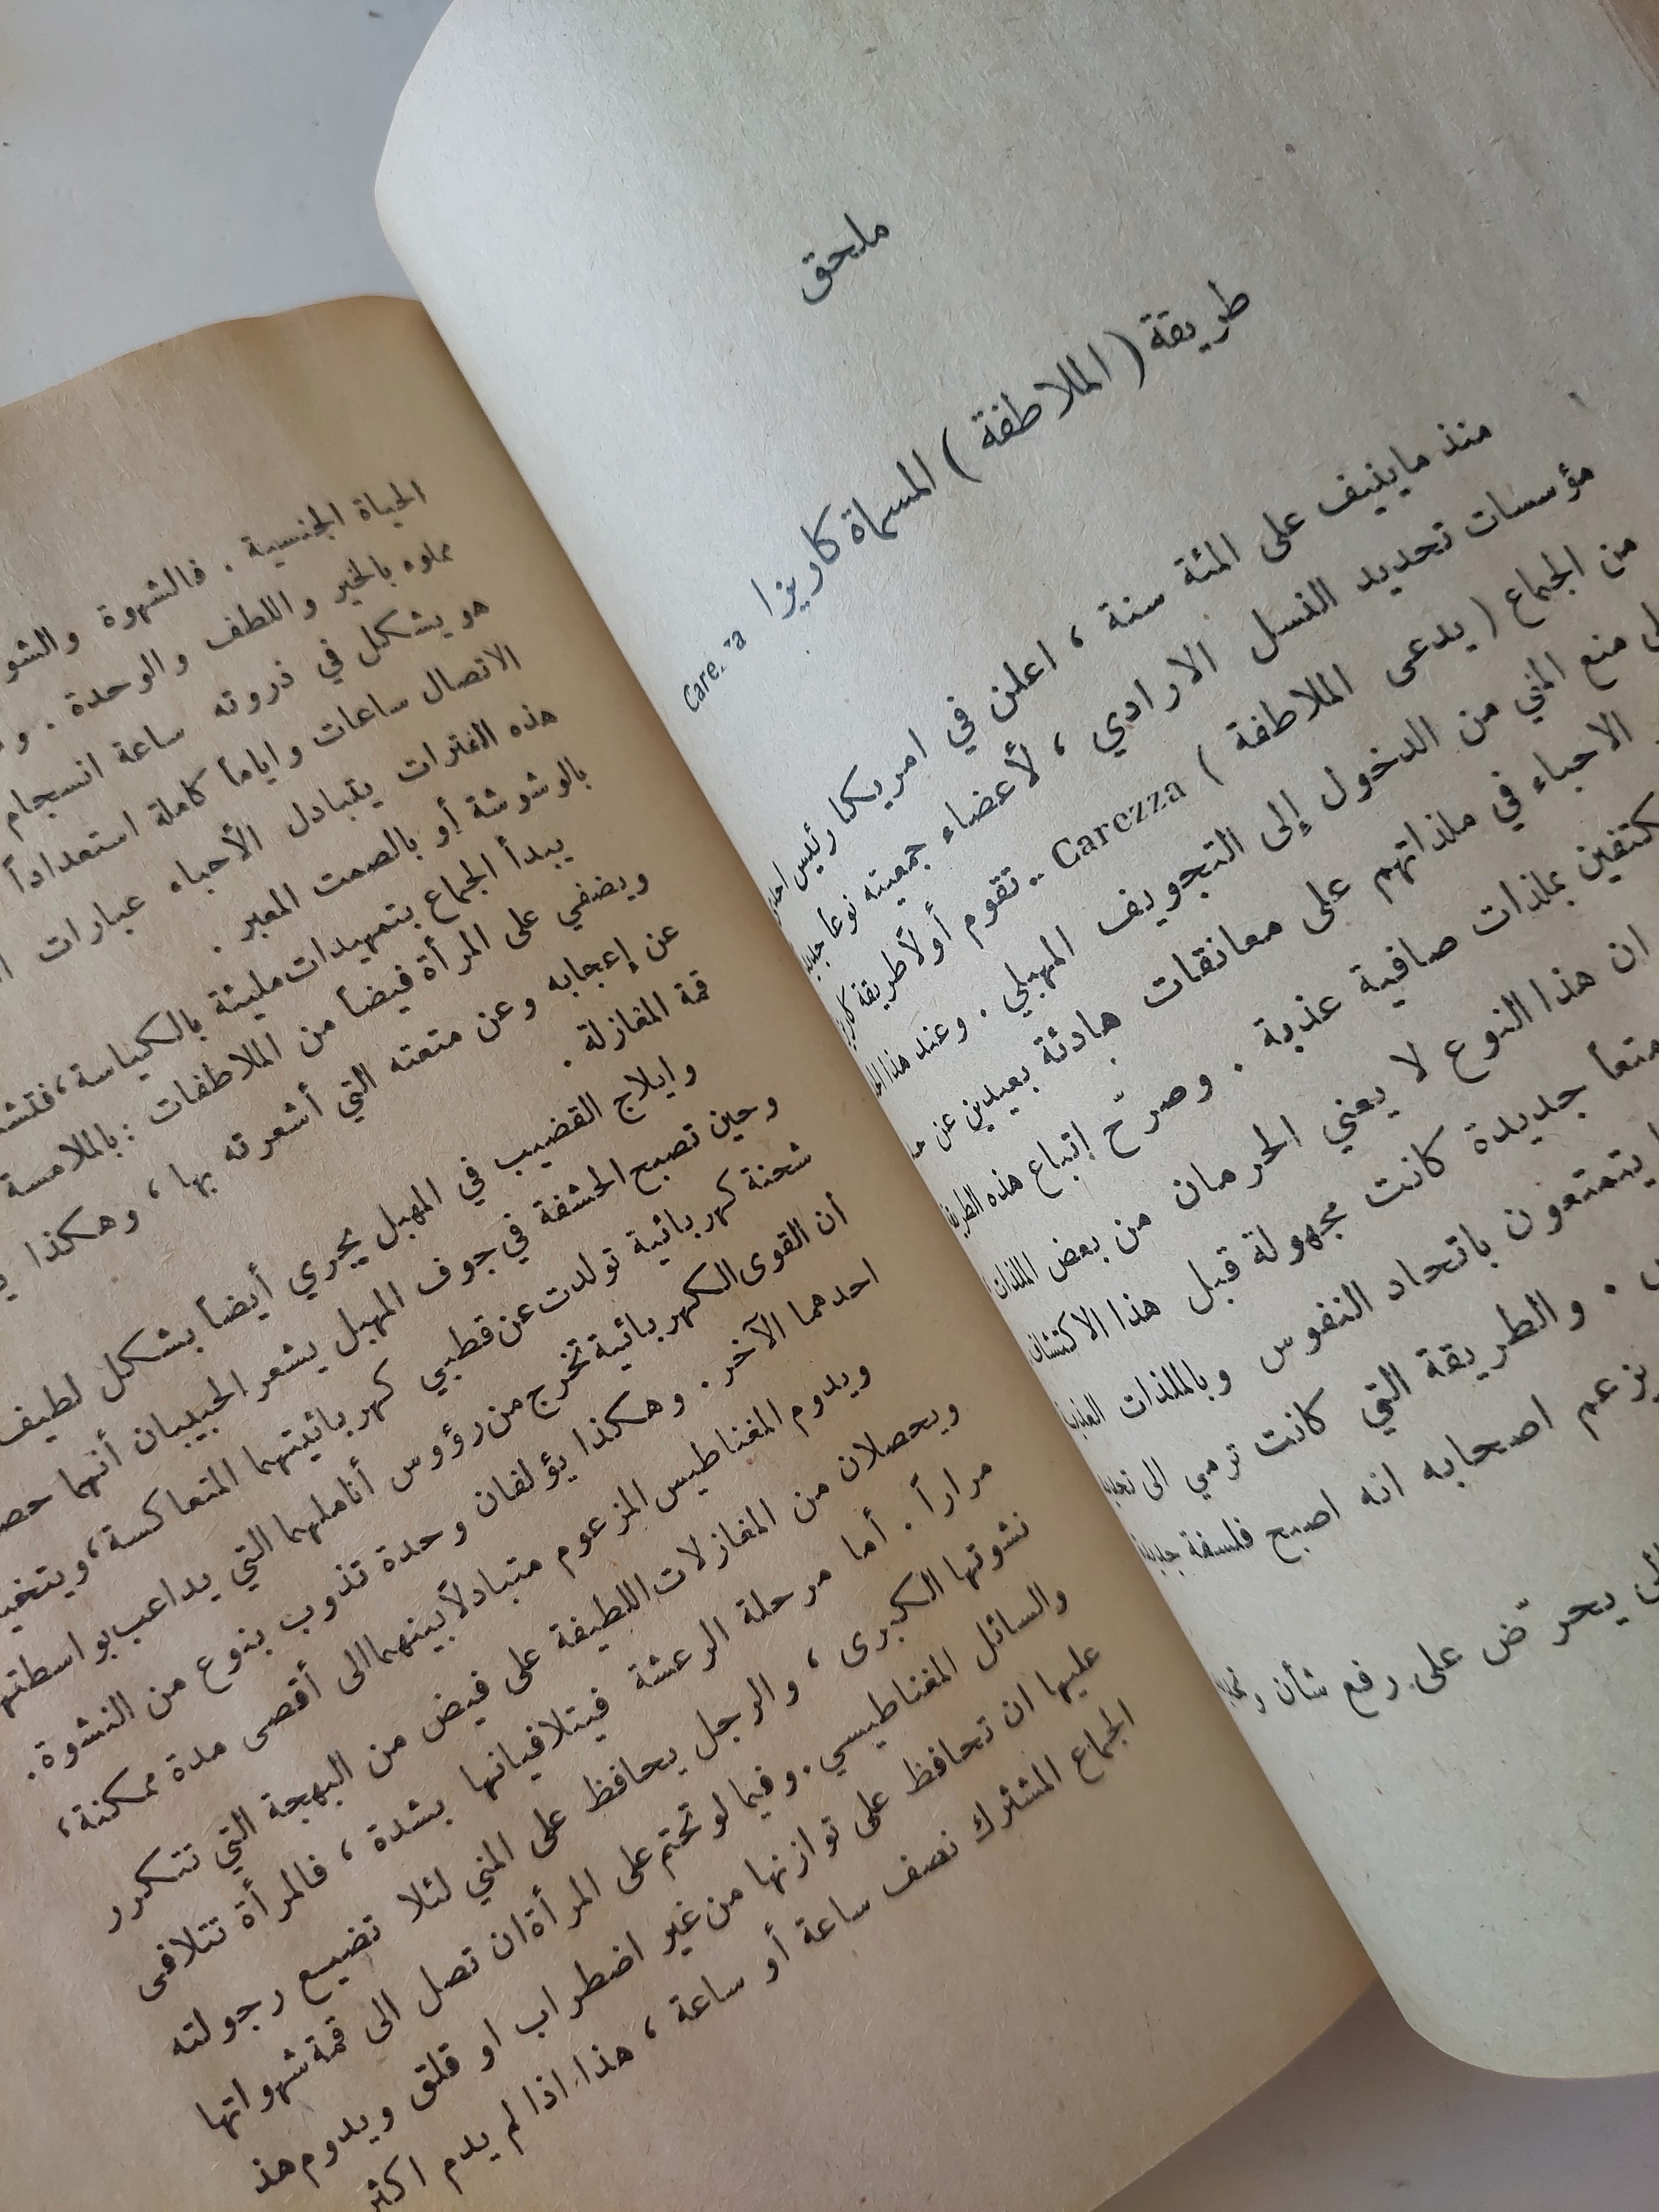 ملحق
طريقة ( الملاطفة ) المسماة كاريزا
منذ ما ينيف على المئة سنة ، اعلن في امريكا رئيس احدى
مؤسسات تحديد النسل الارادي ، لأعضاء جمعيته نوعا
من الجماع ( يدعى الملاطفة ) Carezza .. تقوم أولاً طريقة
منع المني من الدخول إلى التجويف المهبلي . وعند هذا
الاحباء في ملذاتهم على معانقات هادئة بعيدين عن
بملذات صافية عذبة . وصرّح إتباع هذه
ان هذا النوع لا يعني الحرمان من بعض
جديدة كانت مجهولة قبل هذا
يتمتعون باتحاد النفوس وبالملذات
. والطريقة التي كانت ترمي الى
يزعم اصحابه انه اصبح فلسفة
يحرّض على رفع شأن
الحياة الجنسية . فالشهوة
مملوء بالخير واللطف والوحدة .
هو يشكل في ذروته ساعة انسجام
الاتصال ساعات واياماً كاملة استعداداً
هذه الفترات يتبادل الأحباء عبارات
بالوشوشة أو بالصمت المعبر .
يبدأ الجماع بتمهيدات مليئة بالكياسة ،
ويضفي على المرأة فيضاً من الملاطفات : بالملامسة
عن إعجابه وعن متعته التي أشعرته بها ، وهكذا
قمة المغازلة .
وايلاج القضيب في المهبل يجري أيضاً بشكل لطيف
وحين تصبح الحشفة في جوف المهبل يشعر الحبيبان أنهما
شحنة كهربائية تولدت عن قطبي كهربائيتهما المتعاكسة ،
أن القوى الكهربائية تخرج من رؤوس أناملهما التي يداعب بواسطتها
احدهما الآخر . وهكذا يؤلفان وحدة تذوب بنوع من النشوة .
ويدوم المغناطيس المزعوم متبادلاً بينهما الى أقصى مدة ممكنة ،
ويحصلان من المغازلات اللطيفة على فيض من البهجة التي تتكرر
مراراً . أما مرحلة الرعشة فيتلافيانها بشدة ، فالمرأة تتلافى
نشوتها الكبرى ، والرجل يحافظ على المني لئلا تضيع رجولته
والسائل المغناطيسي . وفيما لو تحتم على المرأة ان تصل الى قمة شهواتها
عليها ان تحافظ على توازنها من غير اضطراب او قلق ويدوم هذ
الجماع المشترك نصف ساعة أو ساعة ، هذا اذا لم يدم اكثر